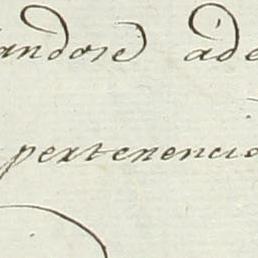 andose ade
pertenencia